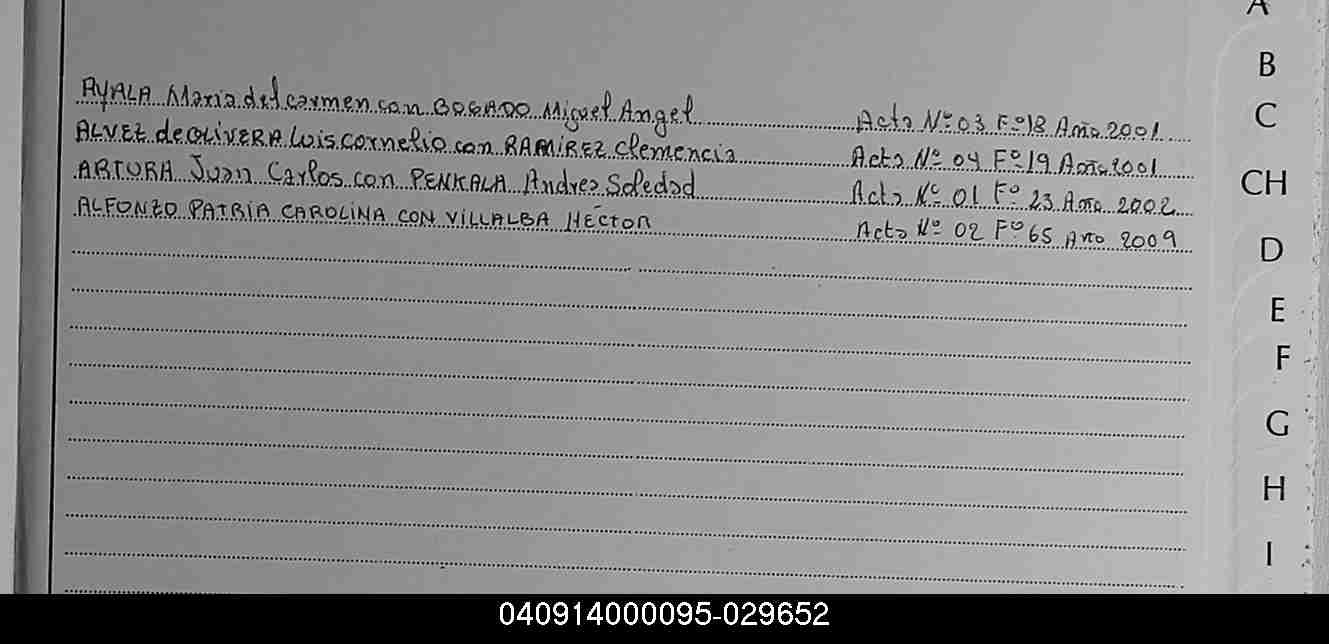 AYALA Maria del carmen con BOGADO Miguel Angel Acta Nº 03 Fº 18 Año 2001
ALVEZ de OLIVERA Luis cornelio con RAMIREZ clemencia Acta Nº 04 Fº 19 Año 2001
ARTURA Juan Carlos con PENKALA Andrea Soledad Acta Nº 01 Fº 23 Año 2002
ALFONZO PATRIA CAROLINA CON VILLALBA HÉCTOR Acta Nº 02 Fº 65 Año 2009
A
B
C
CH
D
E
F
G
H
I
040914000095-029652